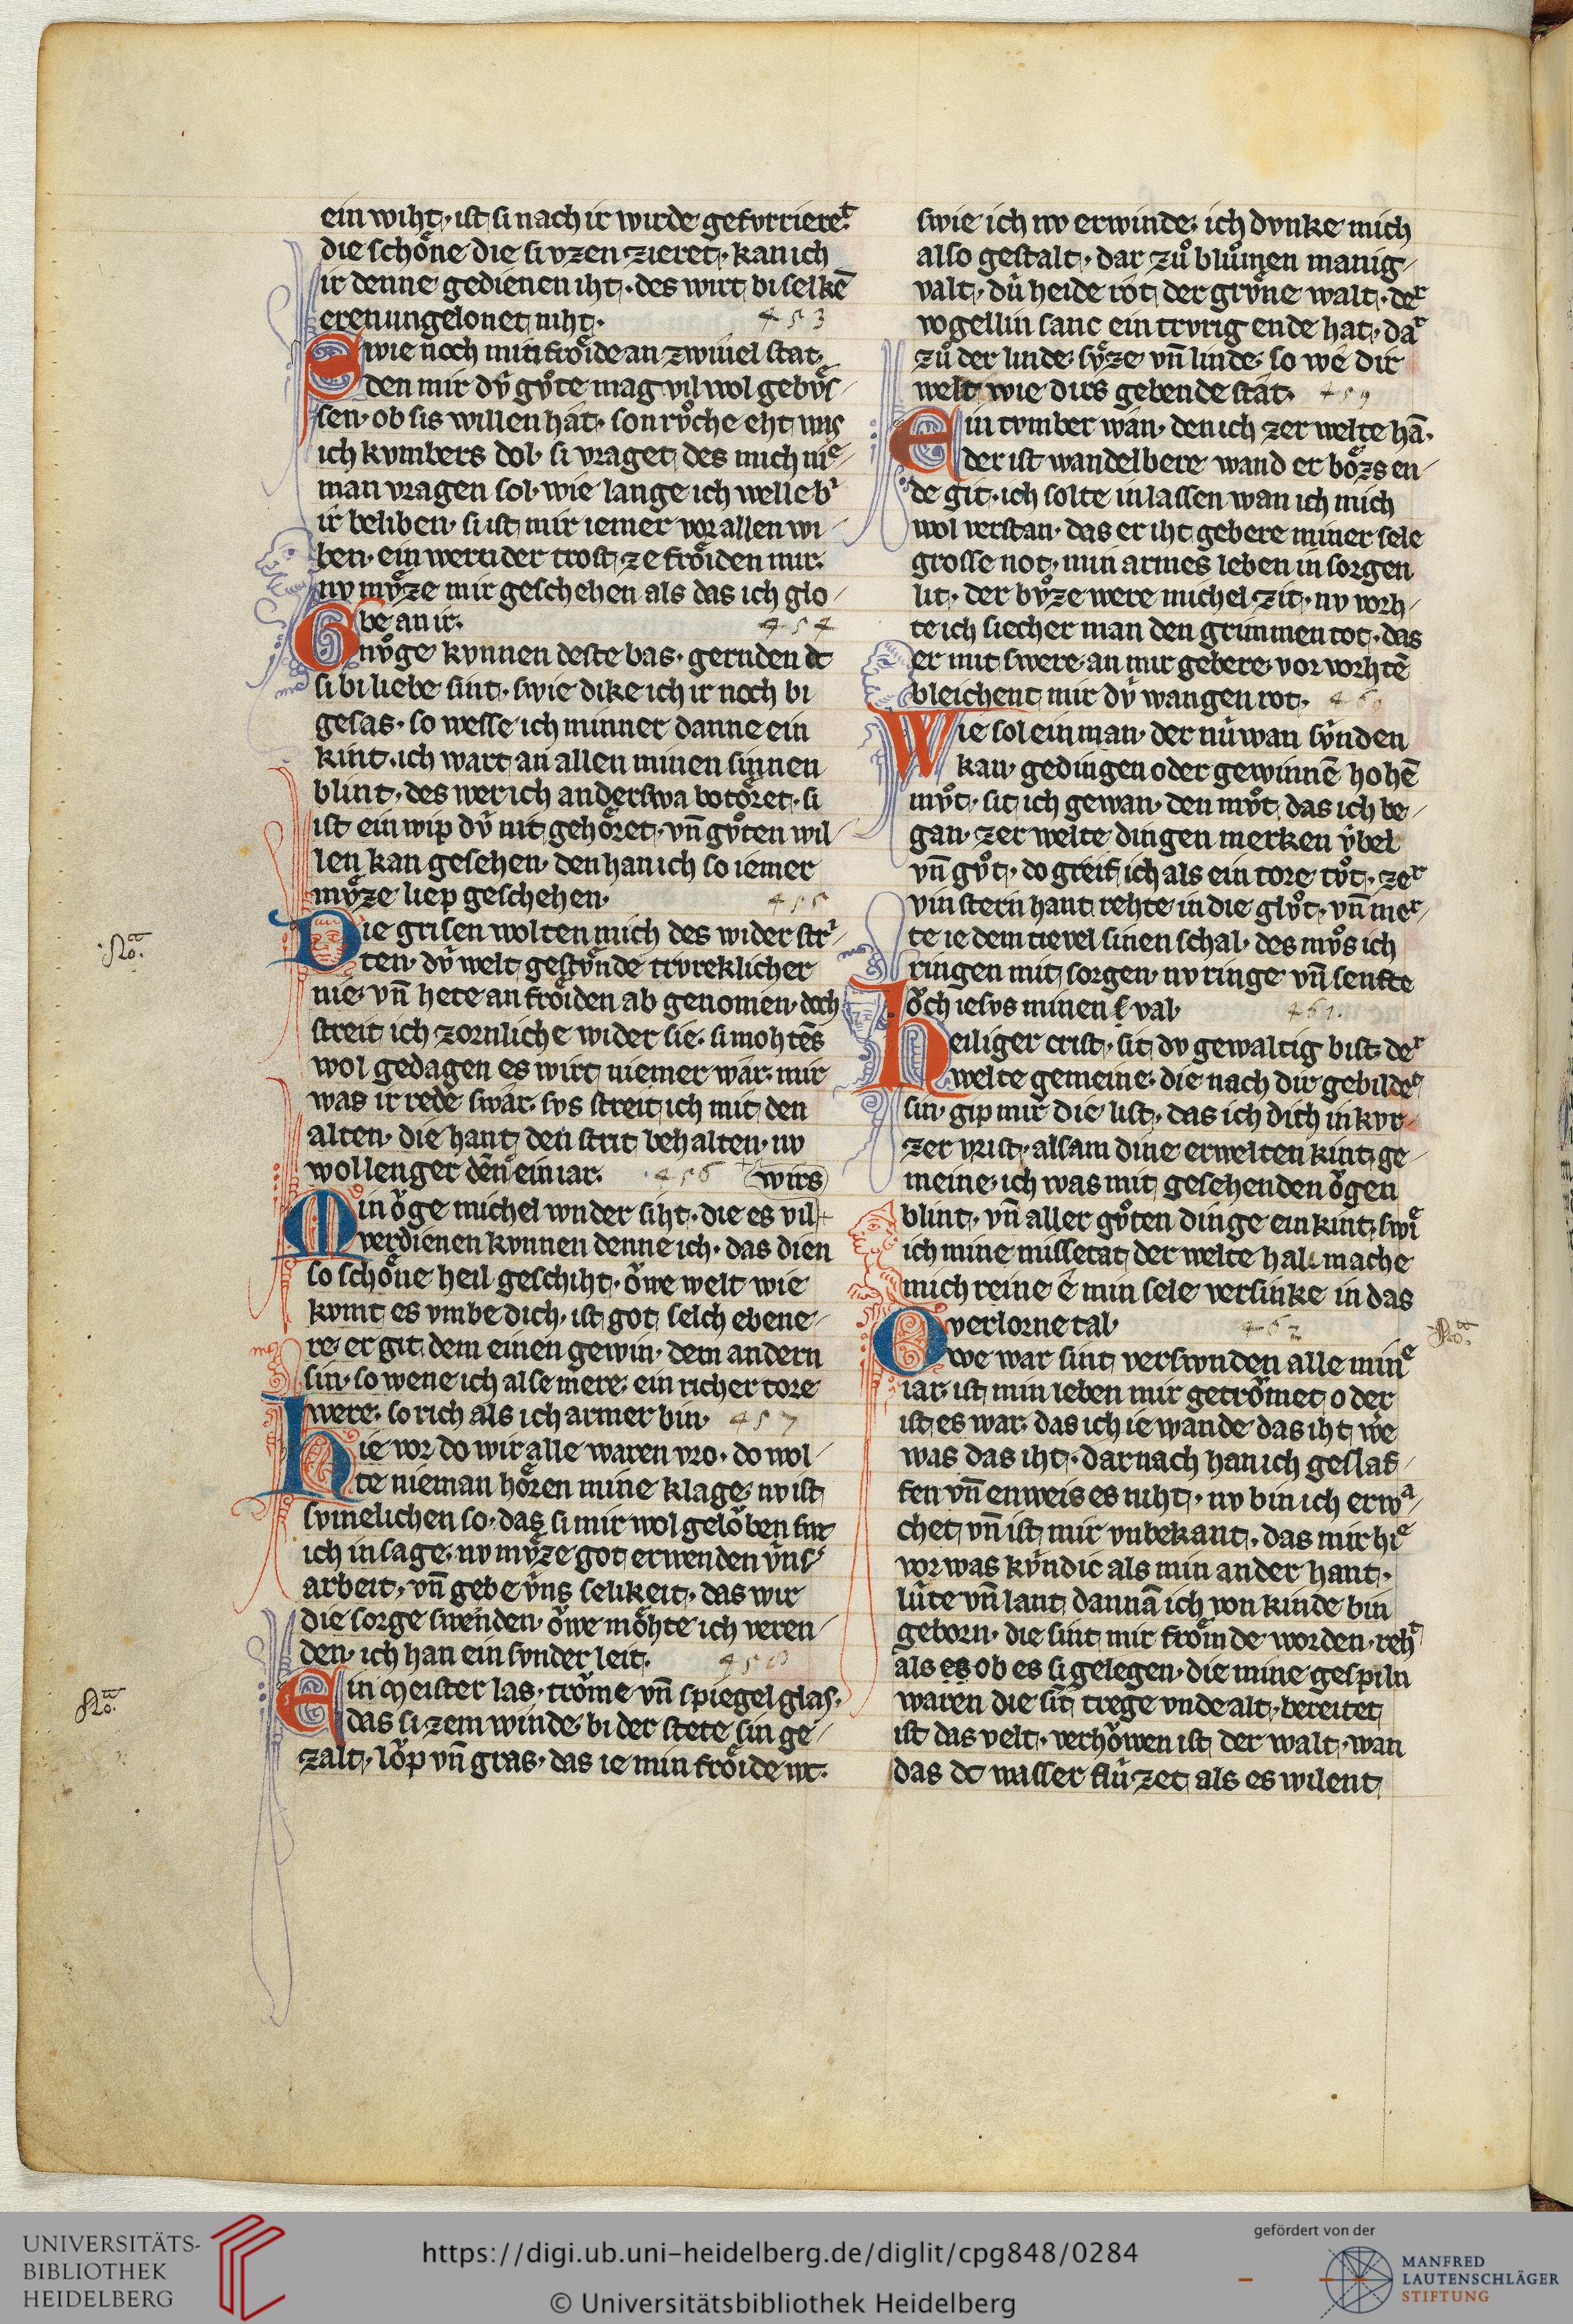 ein wiht· ist si nach ir wirde gefvrrieret·
die schoͤne die si vzen zieret· kan ich
ir denne gedienen iht· des wirt bi selkē
eren ungelonet niht· 453
Swie noch min froͤide an zwiuel stat·
den mir dv̂ gvͦte mag vil wol gebvͤs-
sen· ob sis willen hat· son rvͦche eht uns
ich kvmbers dol· si vraget des mich nie-
man vragen sol· wie lange ich welle bi
ir beliben· si ist mir iemer vor allen wi-
ben· ein wernder trost ze froͤiden mir·
nv mvͤze mir geschehen als das ich glo-
be an ir· 454
Gnvͦge kvnnen deste bas· gernden dc
si bi liebe sint· swie dike ich ir noch bi
gesas· so wesse ich minner danne ein
kint· ich wart an allen minen sinnen
blint· des wer ich anderswa betoͤret· si
ist ein wip dv̂ nit gehoͤret· vn̄ gvͦten wil-
len kan gesehen· den han ich so iemer
mvͤze liep geschehen· 455
Die grisen wolten mich des wider stri-
ten· dv̂ welt gestvͤnde trvreklicher
nie· vn̄ hete an froͤiden ab genomen· doch
streit ich zornliche wider sie· si mohtēs
wol gedagen es wirt niemer war· mir
was ir rede swar· svs streit ich mit den
alten· die hant den strit behalten· nv
wol lenger dēn ein iar· 456 + wirs
Min oͮge michel wnder siht· die es vil +
verdienen kvnnen denne ich· das dien
so schoͤne heil geschiht· oͮwe welt wie
kvmt es vmbe dich· ist got selch ebene-
re· er git dem einen gewin· dem andern
sin· so wene ich als e mere· ein richer tore
were· so rich als ich armer bin· 457
Hie vor do wir alle waren vro· do wol-
te nieman hoͤren mine klage· nv ist
svmelichen so· das si mir wol geloͮben swe
ich in sage· nv mvͤze got erwenden v̂ns
arbeit· vn̄ gebe v̂ns selikeit· das wir
die sorge swenden· oͮwe moͤhte ich veren-
den· ich han ein svnder leit· 458
Ein meister las· troͮme vn̄ spiegel glas·
das si zem winde· bi der stete sin ge-
zalt· loͮp vn̄ gras· das ie min froͤide wc·
swie ich nv erwinde· ich dvnke mich
also gestalt· dar zvͦ blvͦmen manig-
valt· dv̂ heide rot der grvͤne walt· der
vogellin sanc ein trvrig ende hat· dar
zvͦ der linde· svͤze vn̄ linde· so we dir
welt wie dirs gebende stat· 459
Ein tvmber wan· den ich zer welte hā·
der ist wandelbere wand er boͤzs en-
de git· ich solte in lassen wan ich mich
wol verstan· das er iht gebere miner sele
grosse not· min armes leben in sorgen
lit· der bvͦze were michel zit· nv vorh-
te ich siecher man den grimmen tot· das
er mit swere· an mir gebere· vor vorhtē
bleichent mir dv̂ wangen rot· 460
Wie sol ein man· der nu̇wan sv̂nden
kan· gedingen oder gewinnē hohē
mvͦt· sit ich gewan· den mvͦt das ich be-
gan· zer welte dingen merken v̂bel
vn̄ gvͦt· do greif ich als ein tore tvͦt· zer
vinstern hant rehte in die glvͦt· vn̄ mer-
te ie dem tievel sinen schal· des mvͦs ich
ringen mit sorgen· nv ringe vn̄ senfte
oͮch iesvs minen val· 461·
Heiliger crist· sit dv gewaltig bist· der
welte gemeine· die nach dir gebildet
sin· gip mir die list· das ich dich in kvr-
zer vrist· alsam dine erwelten kint ge-
meine· ich was mit gesehenden oͮgen
blint· vn̄ aller gvͦten dinge ein kint· swie
ich mine missetat der welte hal· mache
mich reine e min sele versinke in das
verlorne tal· 462
Owe war sint verswnden alle mine
iar· ist min leben mir getroͮmet oder
ist es war· das ich ie wande das iht we
was das iht· dar nach han ich geslaf-
fen vn̄ enweis es niht· nv bin ich erwa-
chet vn̄ ist mir vnbekant· das mir hie
vor was kv̂ndic als min ander hant·
lu̇te vn̄ lant dannā ich von kinde bin
geborn· die sint mir froͤmde worden· reht
als es ob es si gelegen· die mine gespiln
waren die sīt trege vnde alt· bereitet
ist das velt· verhoͮwen ist der walt· wan
das dc wasser flu̇zet als es wilent
No.
No.
No.
UNIVERSITÄTS-
BIBLIOTHEK
HEIDELBERG
https://digi.ub.uni-heidelberg.de/diglit/cpg848/0284
© Universitätsbibliothek Heidelberg
gefördert von der
MANFRED
LAUTENSCHLÄGER
STIFTUNG